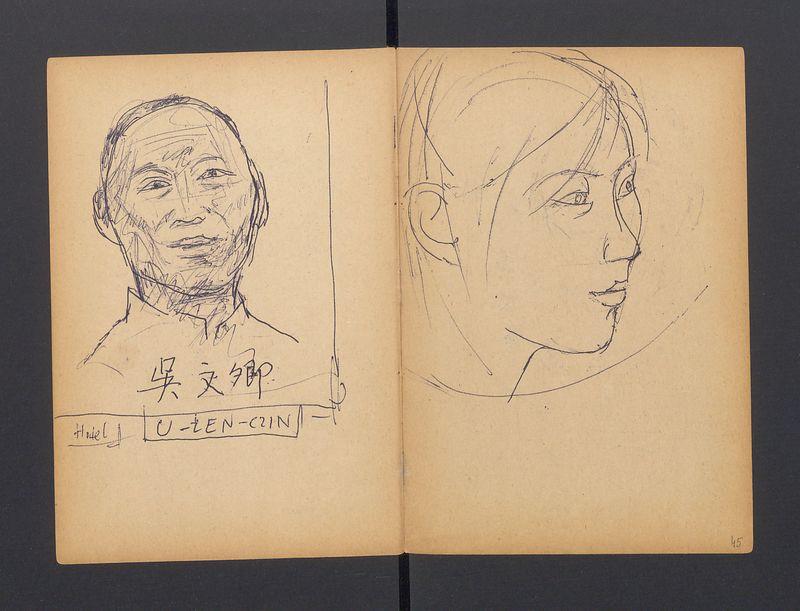 吳文卿
Hotel
U-ŻEN-CZIN
45